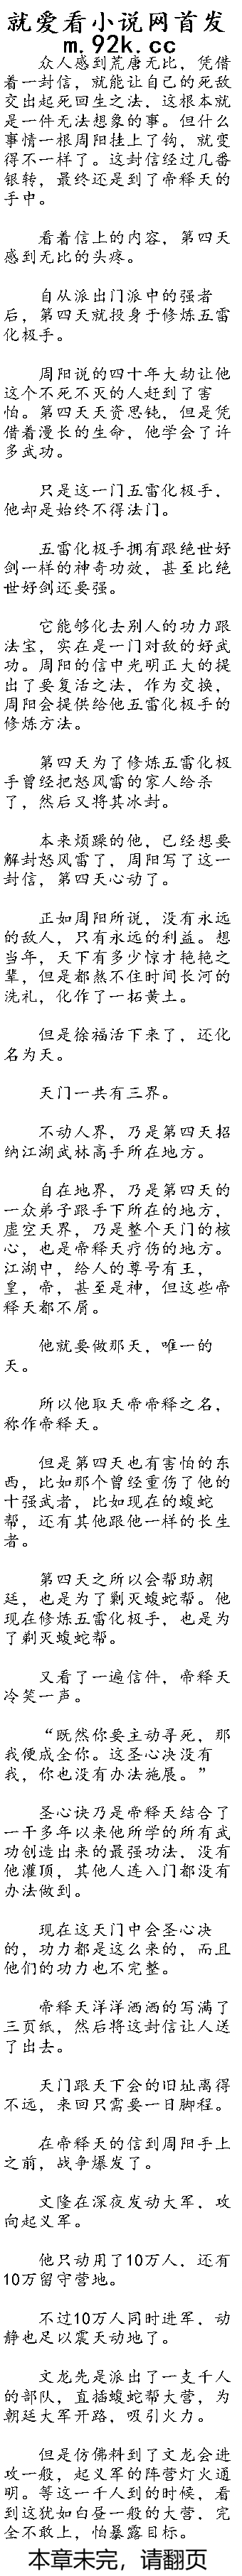 就爱看小说网首发
m.92k.cc
众人感到荒唐无比，凭借
着一封信，就能让自己的死敌
交出起死回生之法，这根本就
是一件无法想象的事。但什么
事情一根周阳挂上了钩，就变
得不一样了。这封信经过几番
银转，最终还是到了帝释天的
手中。
看着信上的内容，第四天
感到无比的头疼。
自从派出门派中的强者
后，第四天就投身于修炼五雷
化极手。
周阳说的四十年大劫让他
这个不死不灭的人赶到了害
怕。第四天天资思钝，但是凭
借着漫长的生命，他学会了许
多武功。
只是这一门五雷化极手，
他却是始终不得法门。
五雷化极手拥有跟绝世好
剑一样的神奇功效，甚至比绝
世好剑还要强。
它能够化去别人的功力跟
法宝，实在是一门对敌的好武
功。周阳的信中光明正大的提
出了要复活之法，作为交换，
周阳会提供给他五雷化极手的
修炼方法。
第四天为了修炼五雷化极
手曾经把怒风雷的家人给杀
了，然后又将其冰封。
本来烦躁的他，已经想要
解封怒风雷了，周阳写了这一
封信，第四天心动了。
正如周阳所说，没有永远
的敌人，只有永远的利益。想
当年，天下有多少惊才艳艳之
辈，但是都熬不住时间长河的
洗礼，化作了一拓黄土。
但是徐福活下来了，还化
名为天。
天门一共有三界。
不动人界，乃是第四天招
纳江湖武林高手所在地方。
自在地界，乃是第四天的
一众弟子跟手下所在的地方，
虚空天界，乃是整个天门的核
心，也是帝释天疗伤的地方。
江湖中，给人的尊号有王，
皇，帝，甚至是神，但这些帝
释天都不屑。
他就要做那天，唯一的
天。
所以他取天帝帝释之名，
称作帝释天。
但是第四天也有害怕的东
西，比如那个曾经重伤了他的
十强武者，比如现在的蝮蛇
帮，还有其他跟他一样的长生
者。
第四天之所以会帮助朝
廷，也是为了剿灭蝮蛇帮。他
现在修炼五雷化极手，也是为
了剿灭蝮蛇帮。
又看了一遍信件，帝释天
冷笑一声。
“既然你要主动寻死，那
我便成全你。这圣心决没有
我，你也没有办法施展。”
圣心诀乃是帝释天结合了
一千多年以来他所学的所有武
功创造出来的最强功法，没有
他灌顶，其他人连入门都没有
办法做到。
现在这天门中会圣心决
的，功力都是这么来的，而且
他们的功力也不完整。
帝释天洋洋洒洒的写满了
三页纸，然后将这封信让人送
了出去。
天门跟天下会的旧址离得
不远，来回只需要一日脚程。
在帝释天的信到周阳手上
之前，战争爆发了。
文隆在深夜发动大军，攻
向起义军。
他只动用了10万人，还有
10万留守营地。
不过10万人同时进军，动
静也足以震天动地了。
文龙先是派出了一支千人
的部队，直插蝮蛇帮大营，为
朝廷大军开路，吸引火力。
但是仿佛料到了文龙会进
攻一般，起义军的阵营灯火通
明。等这一千人到的时候，看
到这犹如白昼一般的大营，完
全不敢上，怕暴露目标。
本章未完，请翻页